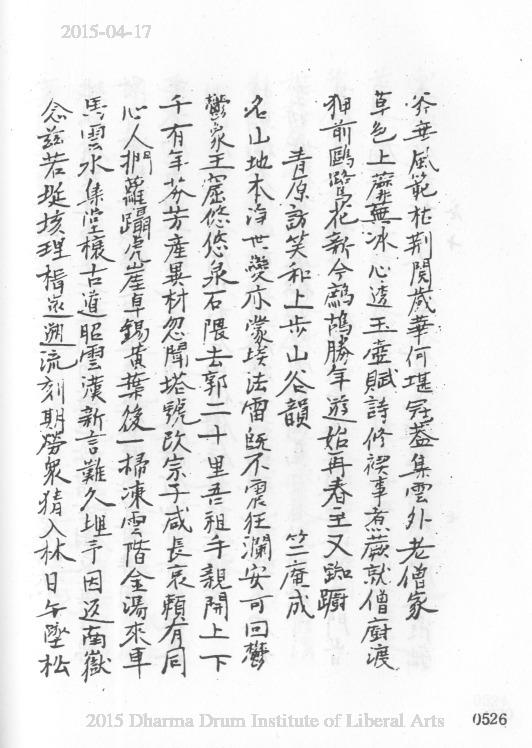 2015-04-17
谷垂風範杜荆閱歲華何堪冠蓋集雲外老僧家
草色上蘼蕪冰心透玉壺賦詩修禊事煮蕨就僧廚渡
狎前鷗鷺花新今鷓鴣勝年遊始再春王又踟躕
青原訪笑和上步山谷韻 竺庵成
名山地本淨世變亦蒙埃法雷既不震狂瀾安可回鬱
鬱家王窟悠悠泉石隈去郭二十里吾祖手親開上下
千有年芬芳產異材忽聞塔號改宗子咸長哀賴有同
心人捫蘿躡虎崖卓錫黃葉後一掃凍雲階金湯來車
馬雲水集堂檁古道昭雲漢新言難久埋予因返南嶽
念茲若埏垓理楫亟遡流刻期勞眾猜入林日午墜松
2015 Dharma Drum Institute of Liberal Arts
0526